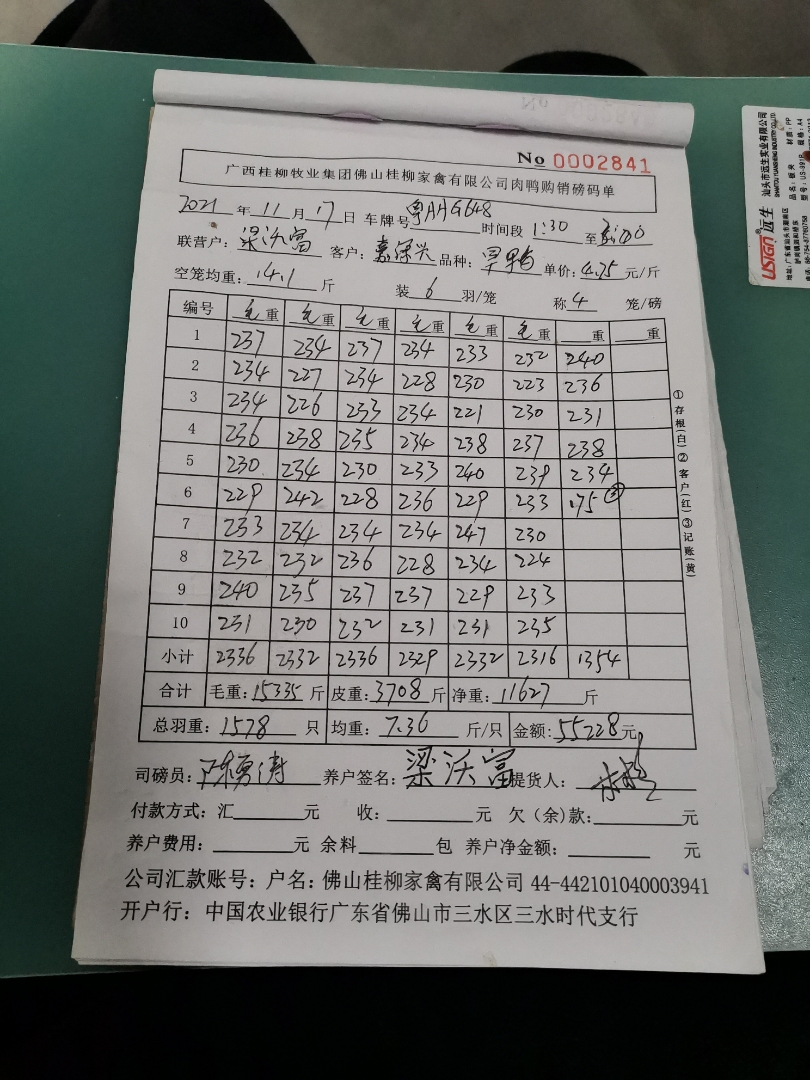 No 0002841
广西桂柳牧业集团佛山桂柳家禽有限公司肉鸭购销磅码单
2021 年 11 月 17 日 车牌号 粤AHG648 时间段 1:30 至
联营户: 梁沃富 客户: 品种: 单价: 4.75 元/斤
空笼均重: 14.1 斤 装 6 羽/笼 称 4 笼/磅
编号 毛重 毛重 毛重 毛重 毛重 毛重 重 重
1 237 234 237 234 233 232 240
2 234 227 234 228 230 223 236
3 234 226 233 234 221 230 231
4 236 238 235 234 238 237 238
5 230 234 230 233 240 239 234
6 229 242 228 236 229 233 175 ③
7 233 234 234 234 247 230
8 232 232 236 228 234 224
9 240 235 237 237 229 233
10 231 230 232 231 231 235
小计 2336 2332 2336 2329 2332 2316 1354
合计 毛重: 15335 斤 皮重: 3708 斤 净重: 11627 斤
总羽重: 1578 只 均重: 7.36 斤/只 金额: 55228 元
司磅员: 陈勇涛 养户签名: 梁沃富 提货人:
付款方式: 汇 元 收: 元 欠(余)款: 元
养户费用: 元 余料 包 养户净金额: 元
公司汇款账号: 户名: 佛山桂柳家禽有限公司 44-442101040003941
开户行: 中国农业银行广东省佛山市三水区三水时代支行
①存根(白)②客户(红)③记账(黄)
USIGN 远生
汕头市远生实业有限公司
品名: 板夹 材质: PP
规格: A4